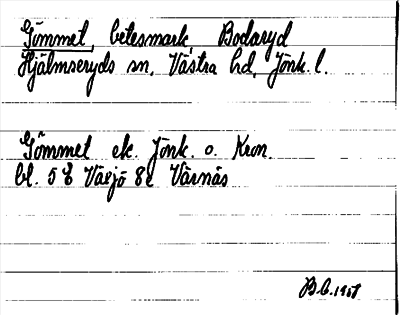 Gömmet, betesmark, Bodaryd
Hjälmseryds sn, Västra hd, Jönk. l.
Gömmet ek. Jönk. o. Kron.
bl. 5 E Växjö 8e Värnäs
B.C. 1951